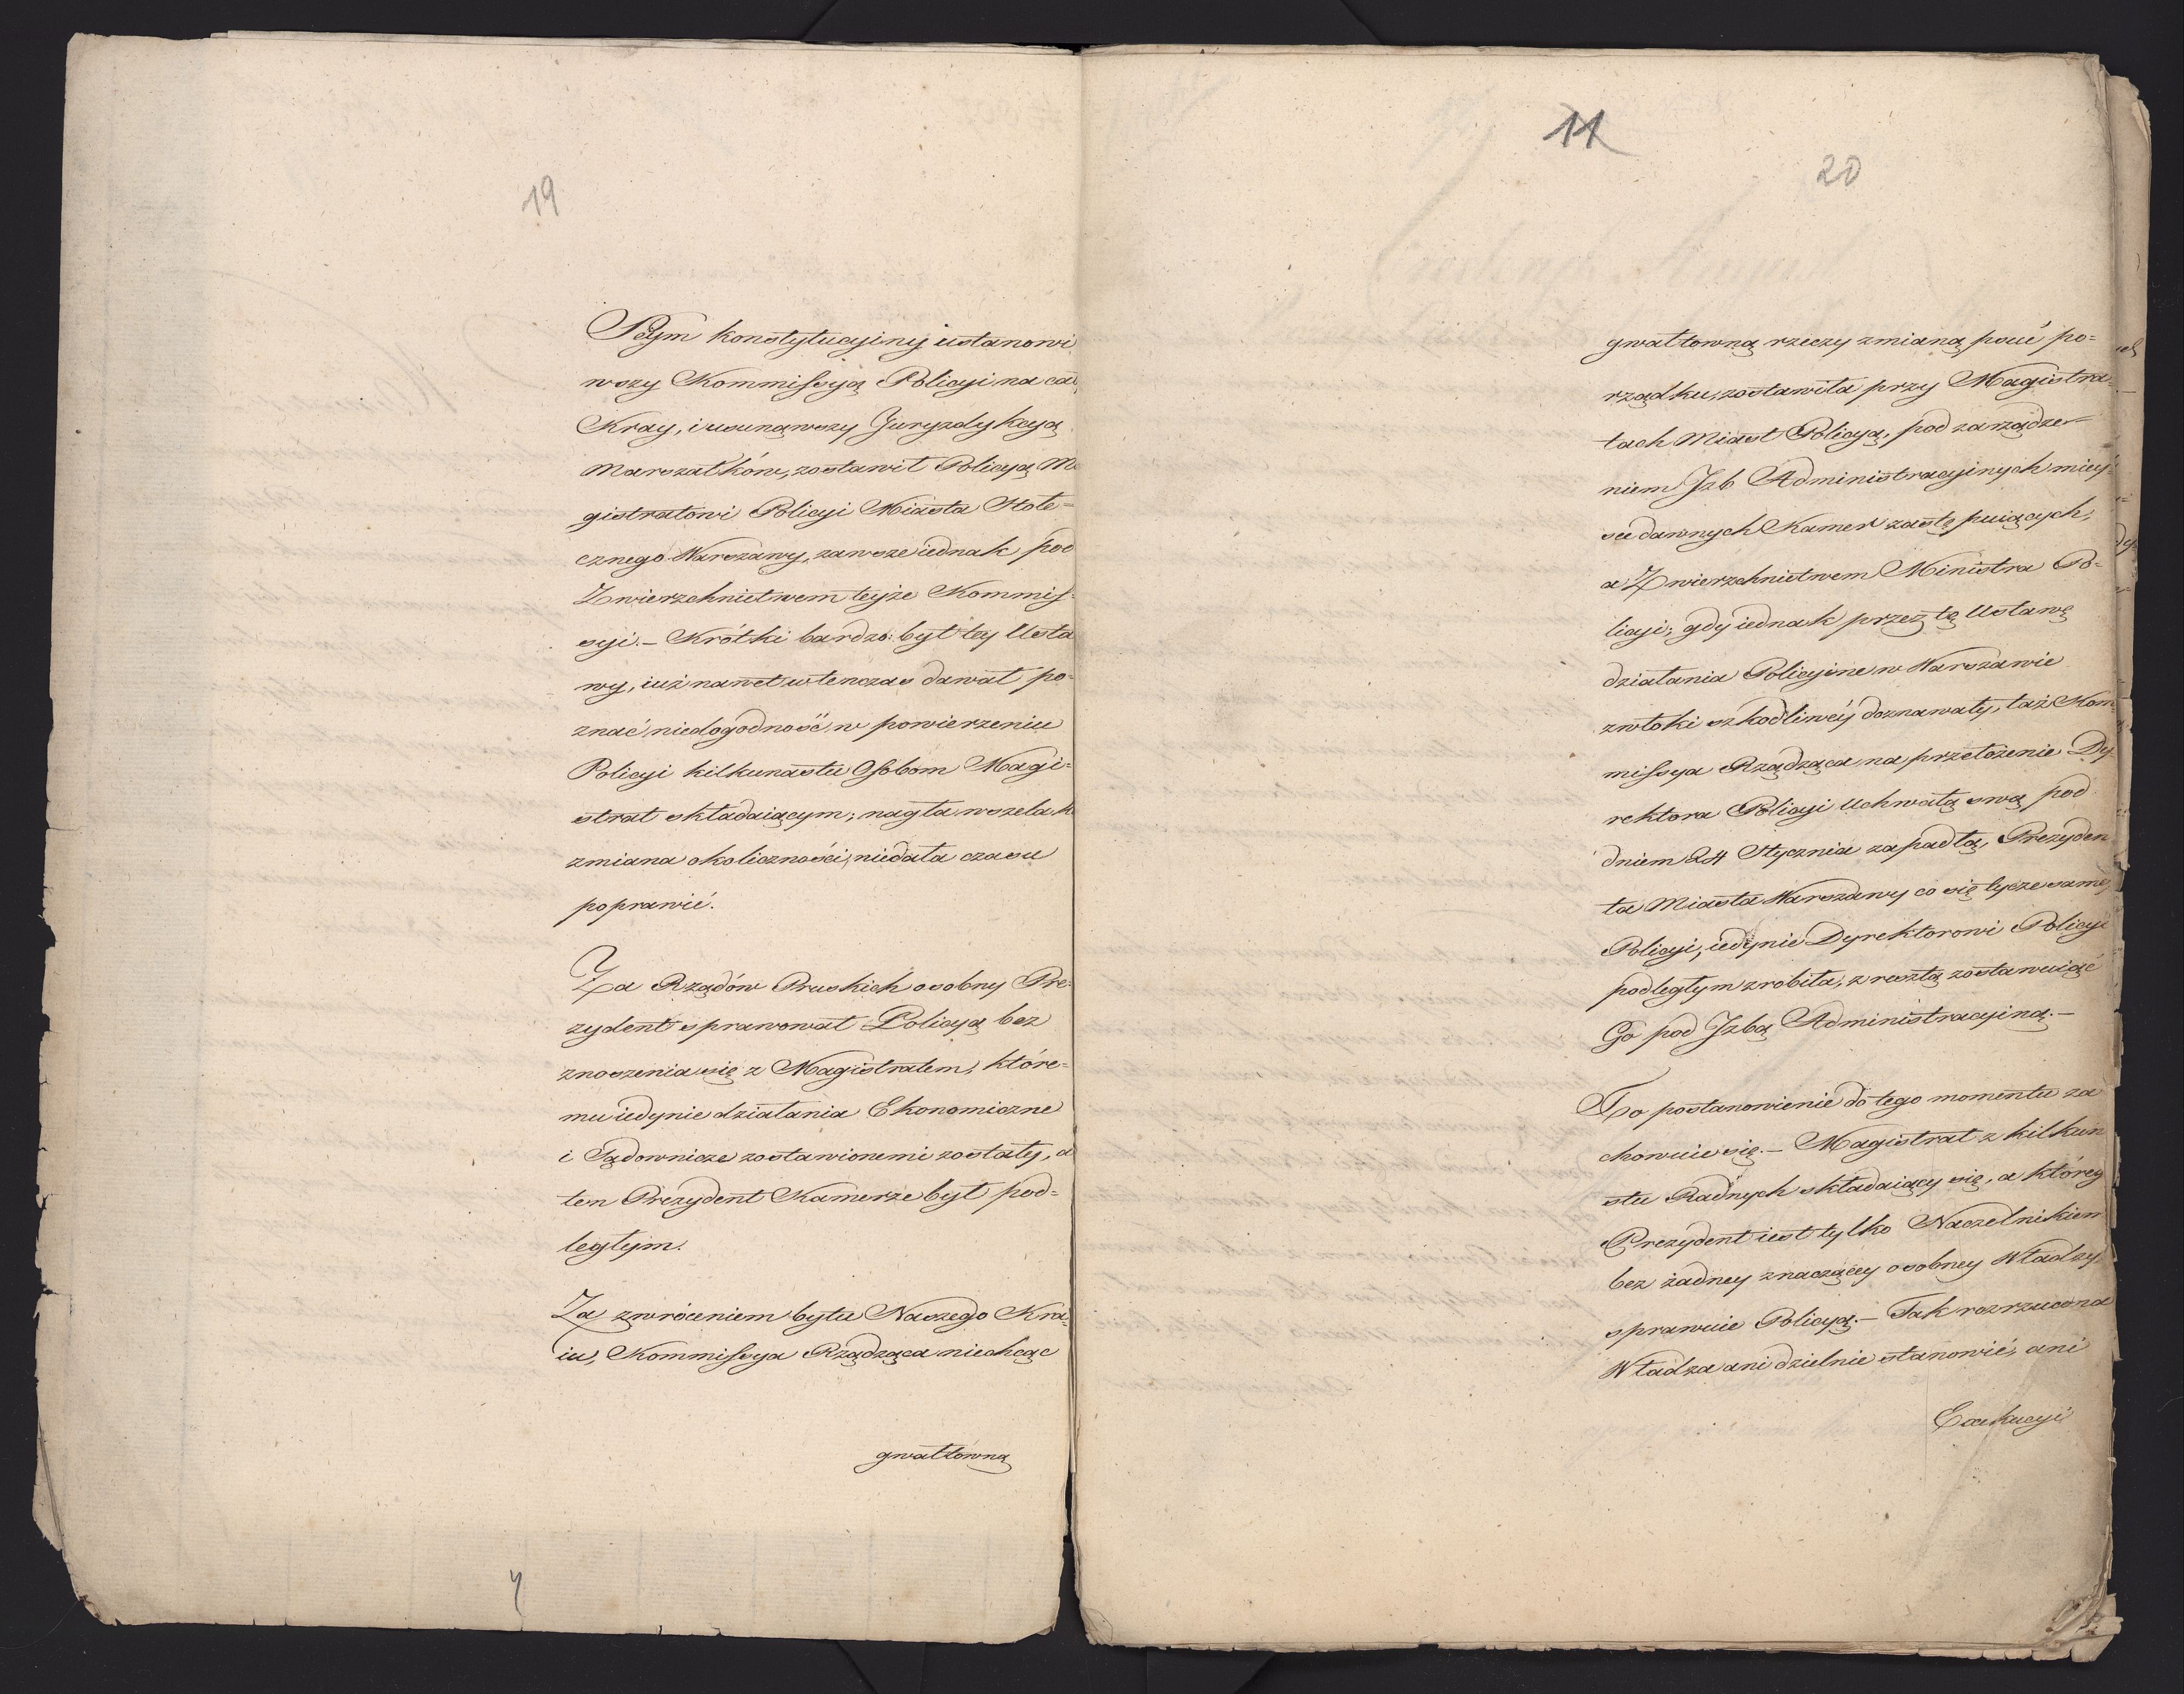 19
Seym konstytucyiny ustanowi
wszy Kommissyą Policyi na cał
Kray, i usunąwszy Juryzdykcyą
Marszałków, zostawił Policyą Ma
gistratowi Policyi Miasta Stołe=
cznego Warszawy, zawsze iednak pod
Zwierzchnictwem teyże Kommis=
syi. – Krótki bardzo byt tey Usta
wy, iuż nawet wtenczas dawał po=
znać niedogodność w powierzeniu
Policyi kilkunastu Osobom Magi=
strat składaiącym; nagła wszelak
zmiana okoliczności, niedała czasu
poprawić.
Za Rządów Pruskich osobny Pre=
zydent sprawował Policyą bez
znoszenia się z Magistratem, które=
mu iedynie działania Ekonomiczne
i Sądownicze zostawionemi zostały, a
ten Prezydent Kamerze był pod=
ległym.
Za zwróceniem bytu Naszego Kra=
iu, Kommissya Rządząca niechcąc
gwałtowną
11
20
gwałtowną rzeczy zmianą psuć po=
rządku, zostawiła przy Magistra=
tach Miast Policyą, pod zarządze=
niem Jzb Administracyinych miey=
sce dawnych Kamer zastępuiących,
a Zwierzchnictwem Ministra Po=
licyi; gdy iednak przez tę Ustawę
działania Policyine w Warszawie
zwłoki szkodliwéy doznawały, taż Kom=
missya Rządząca na przełożenie Dy
rektora Policyi Uchwałą swą pod
dniem 24 Stycznia zapadłą, Prezyden
ta Miasta Warszawy co się tycze samey
Policyi, iedynie Dyrektorowi Policyi
podległym zrobiła, z resztą zostawuiąć
Go pod Jzbą Administracyiną. –
To postanowienie do tego momentu za
chowuie się. – Magistrat z kilkun
stu Radnych składaiący się, a któreg
Prezydent iest tylko Naczelnikiem
bez żadney znaczącey osobney Władzy
sprawuie Policyą. – Tak rozrzucona
Władza ani dzielnie stanowić, ani
Exekucyi